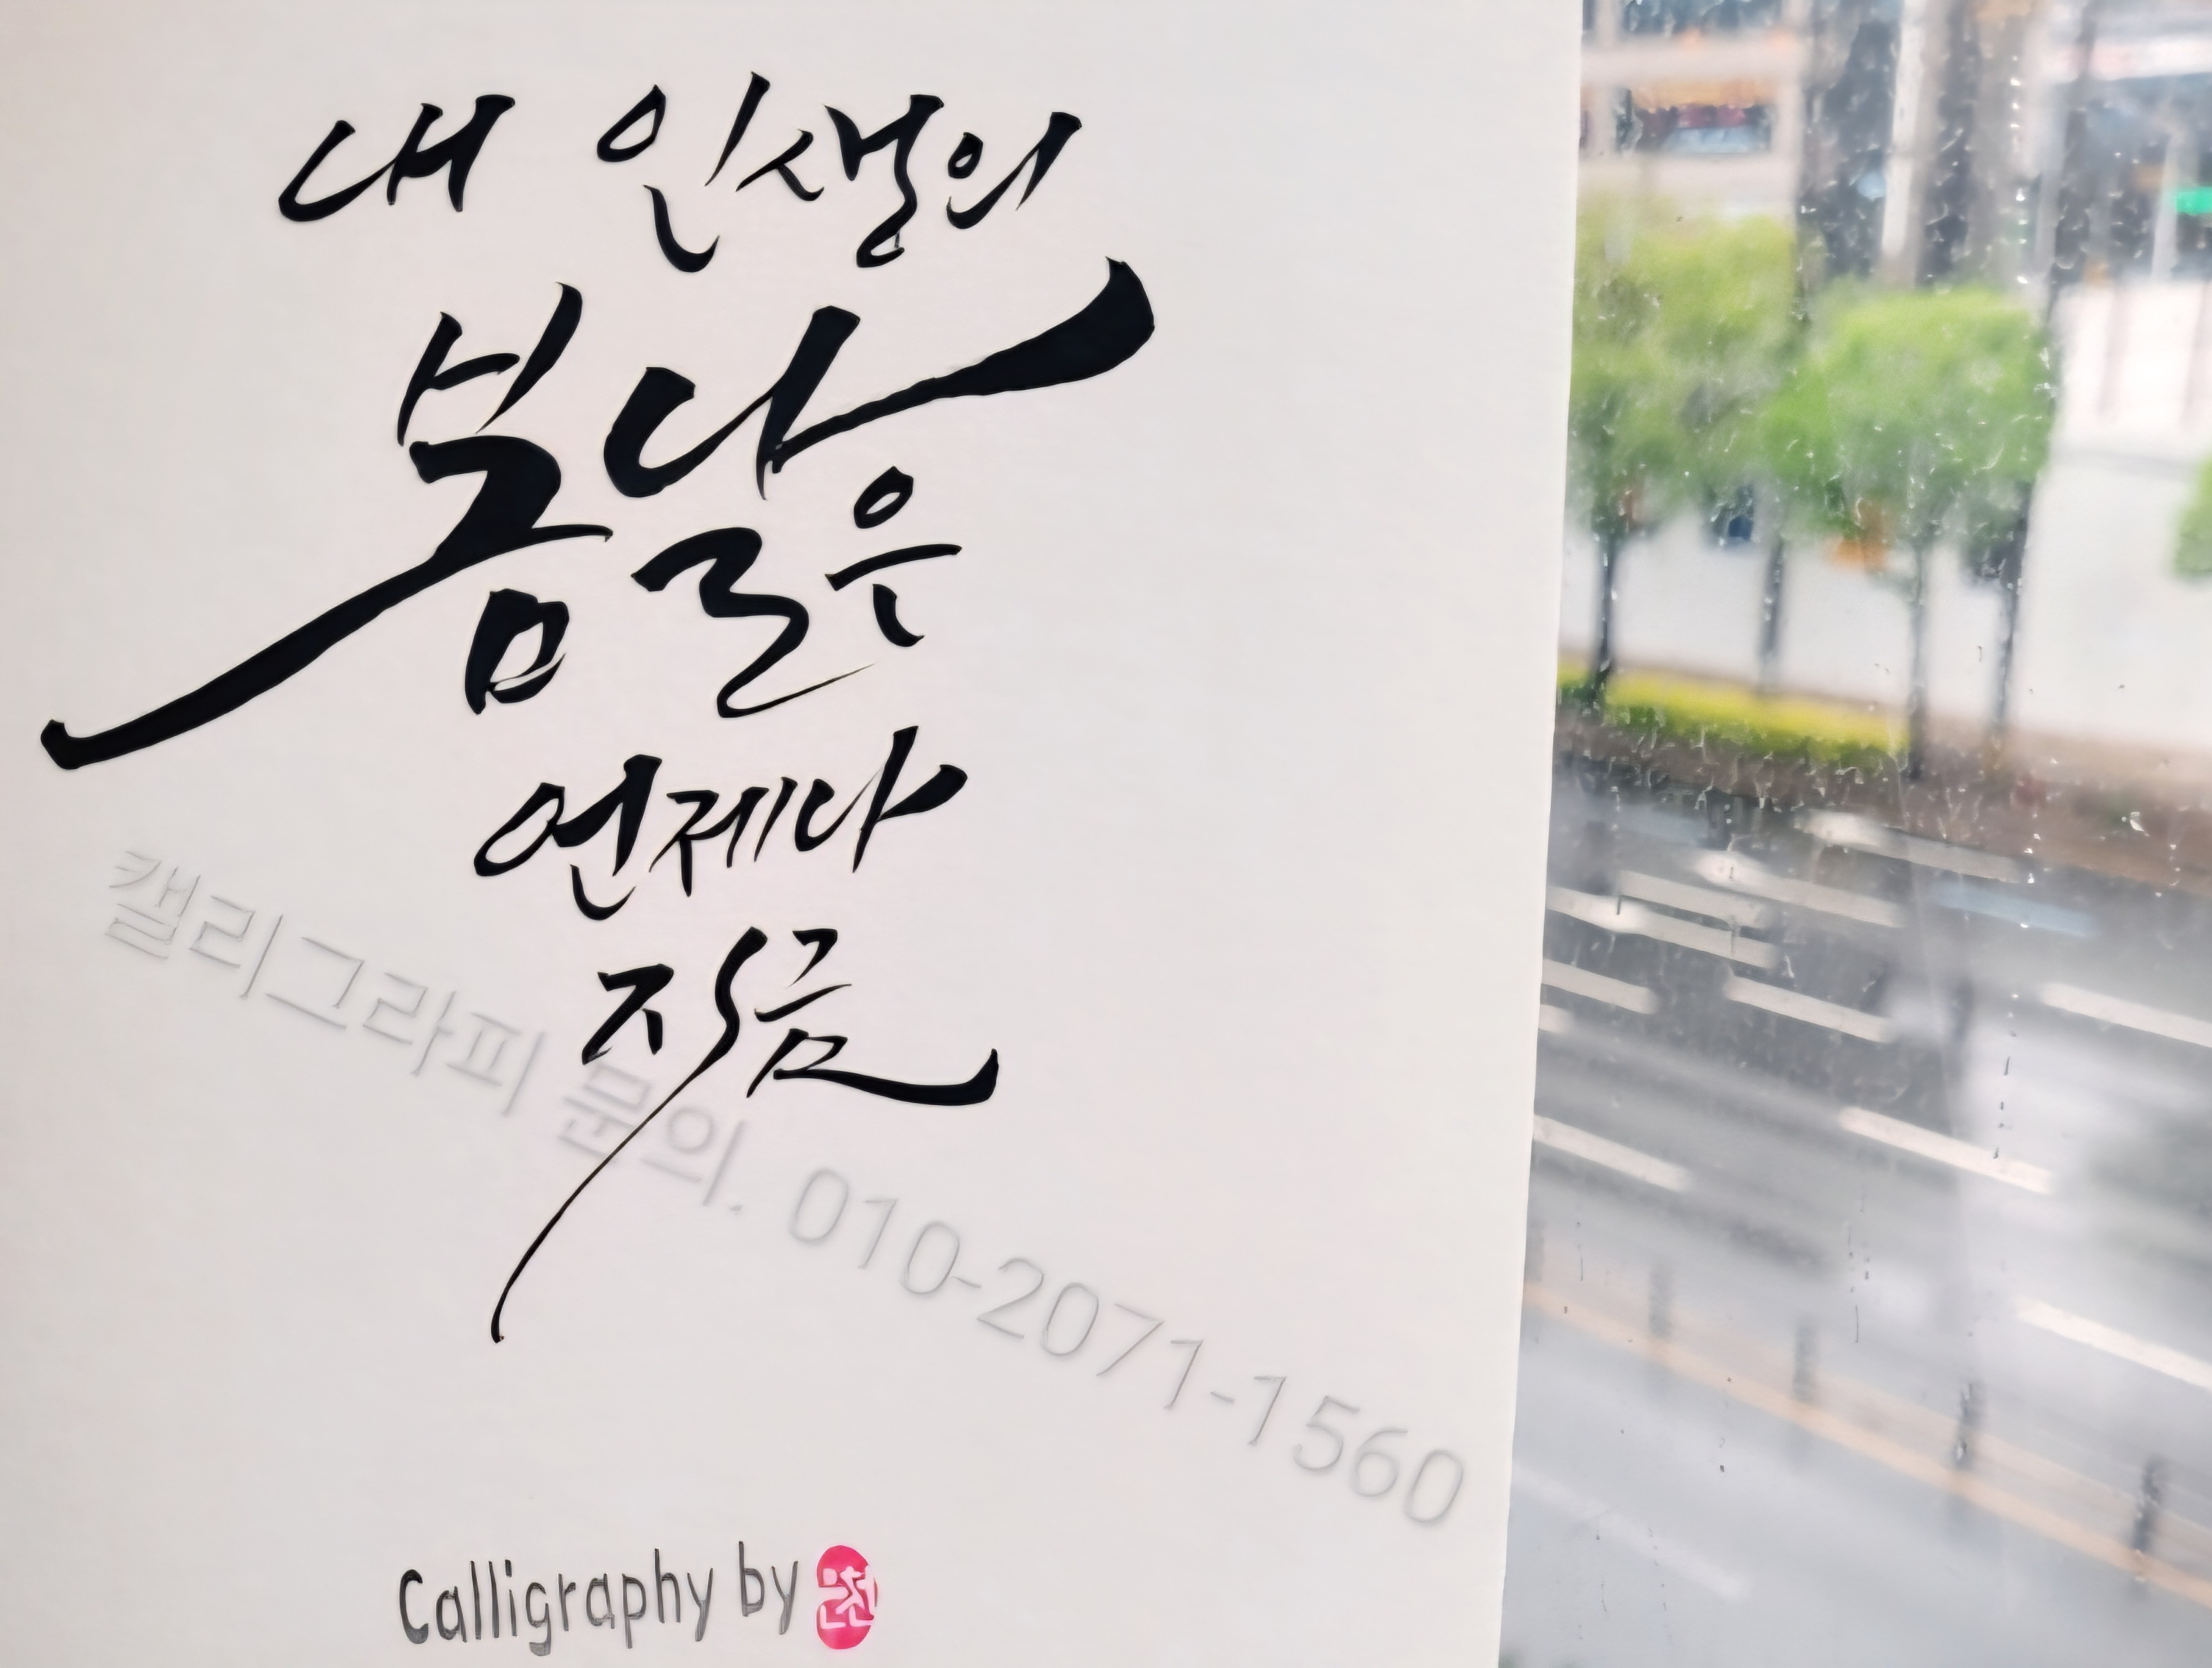 내 인생의
봄날은
언제나
지금
캘리그라피 문의. 010-2071-1560
Calligraphy by